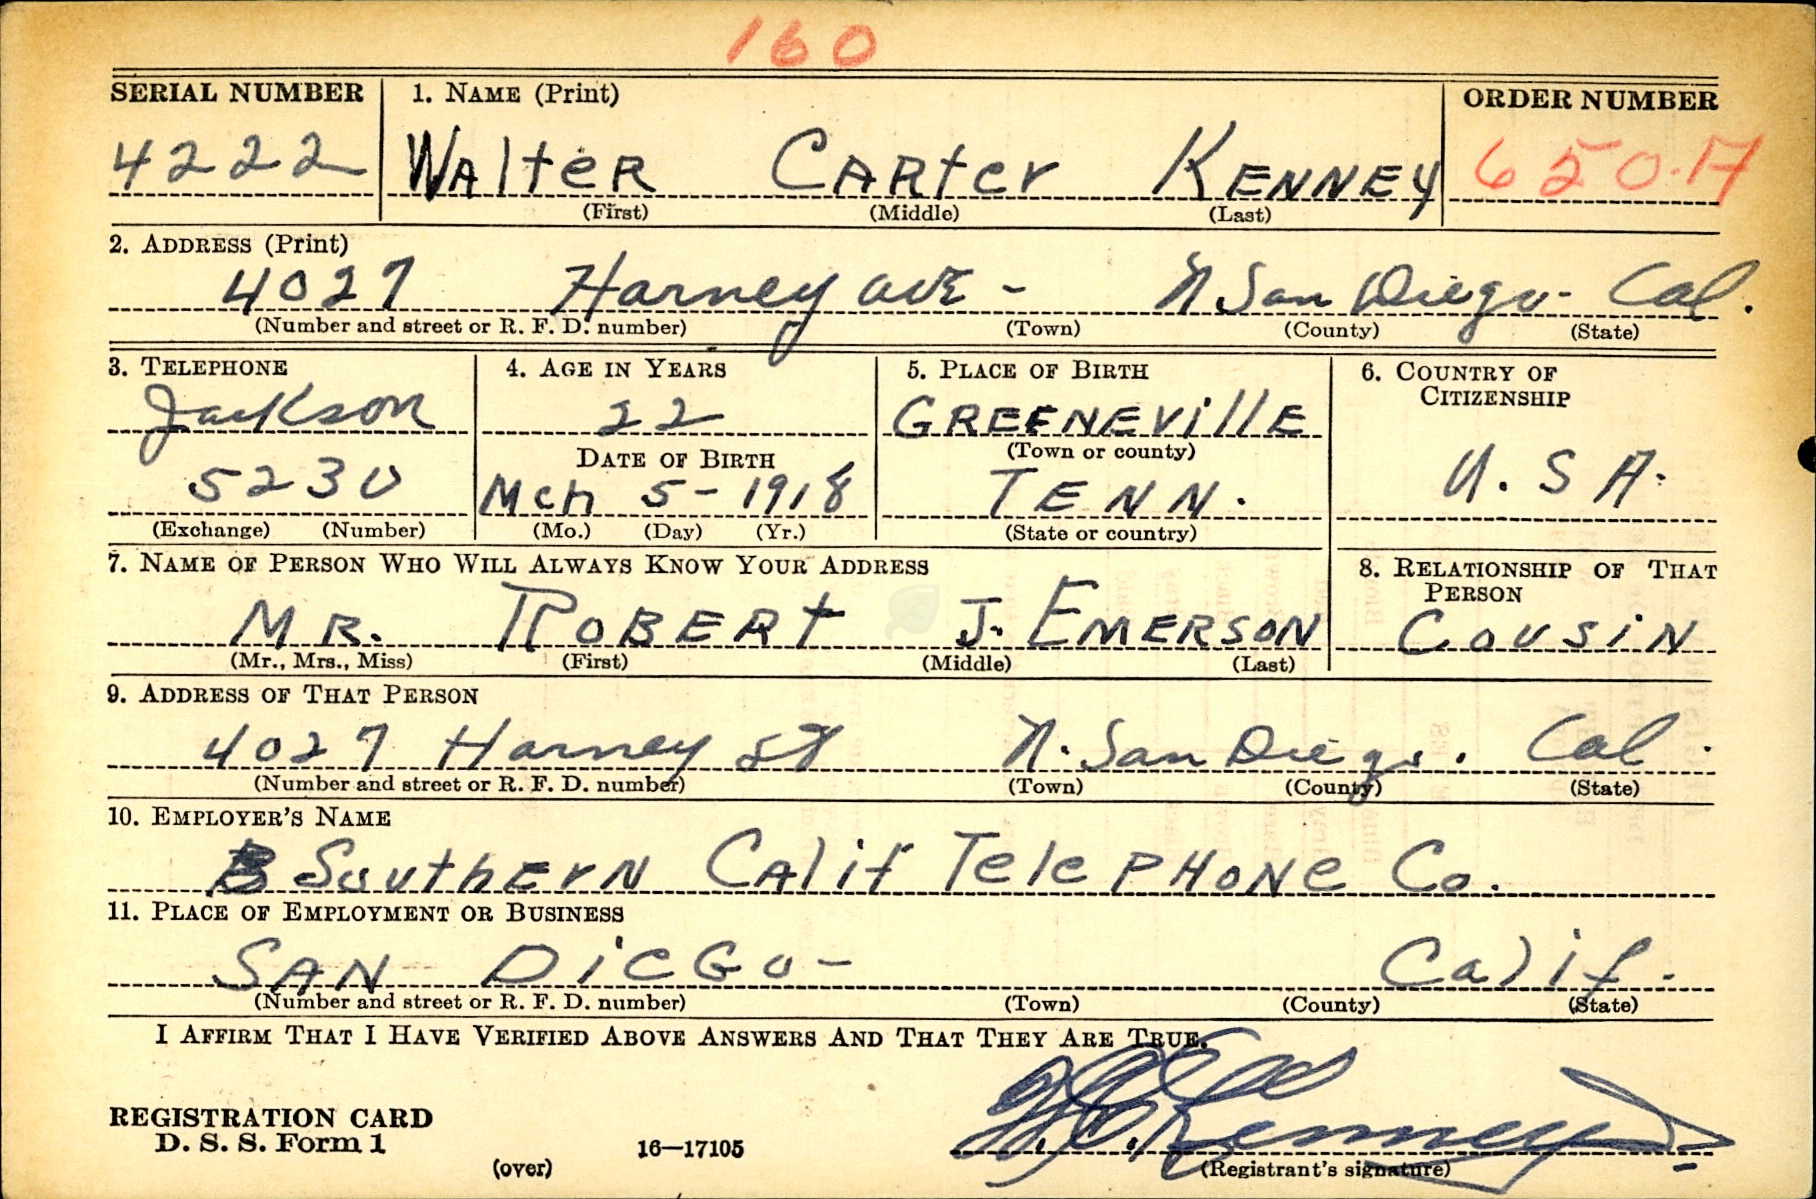 160
SERIAL NUMBER 1. NAME (Print) ORDER NUMBER
4222 WAlteR CARter KENNEY 650-A
(First) (Middle) (Last)
2. ADDRESS (Print)
4027 Harney ave - N San Diego - Cal.
(Number and street or R. F. D. number) (Town) (County) (State)
3. TELEPHONE 4. AGE IN YEARS 5. PLACE OF BIRTH 6. COUNTRY OF CITIZENSHIP
Jackson 22 GREENEVillE
DATE OF BIRTH (Town or county)
5230 Mch 5 - 1918 TENN. U.S A.
(Exchange) (Number) (Mo.) (Day) (Yr.) (State or country)
7. NAME OF PERSON WHO WILL ALWAYS KNOW YOUR ADDRESS 8. RELATIONSHIP OF THAT PERSON
MR. ROBERt J. EMERSON COUSiN
(Mr., Mrs., Miss) (First) (Middle) (Last)
9. ADDRESS OF THAT PERSON
4027 Harney St N. San Diego. Cal.
(Number and street or R. F. D. number) (Town) (County) (State)
10. EMPLOYER'S NAME
SouthErN CAlif TelePHONe Co.
11. PLACE OF EMPLOYMENT OR BUSINESS
SAN DieGo - Calif.
(Number and street or R. F. D. number) (Town) (County) (State)
I AFFIRM THAT I HAVE VERIFIED ABOVE ANSWERS AND THAT THEY ARE TRUE.
REGISTRATION CARD
D. S. S. Form 1 16—17105 W. C. Kenney
(over) (Registrant's signature)